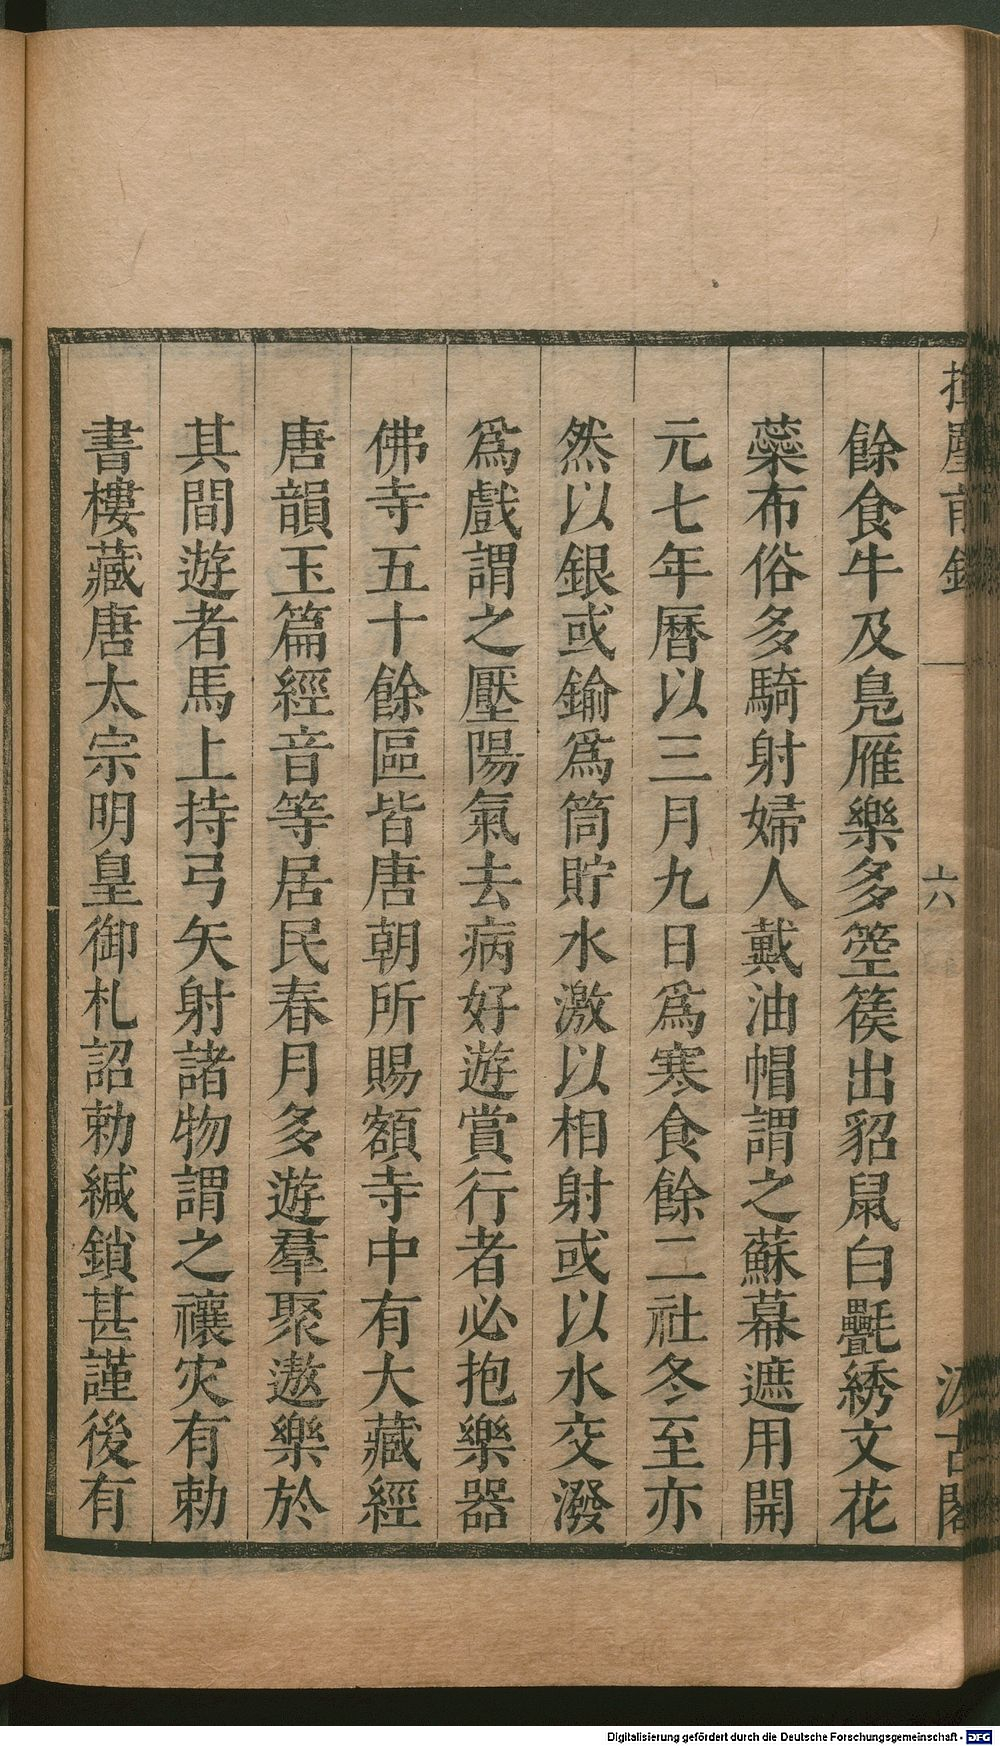 揮麈前錄
六
汲古閣
餘食牛及鳬雁樂多箜篌出貂鼠白㲲綉文花
蘂布俗多騎射婦人戴油帽謂之蘇幕遮用開
元七年曆以三月九日爲寒食餘二社冬至亦
然以銀或鍮爲筒貯水激以相射或以水交潑
爲戲謂之壓陽氣去病好遊賞行者必抱樂器
佛寺五十餘區皆唐朝所賜額寺中有大藏經
唐韻玉篇經音等居民春月多遊羣聚遨樂於
其間遊者馬上持弓矢射諸物謂之禳灾有勅
書樓藏唐太宗明皇御札詔勅緘鎖甚謹後有
Digitalisierung gefördert durch die Deutsche Forschungsgemeinschaft - DFG